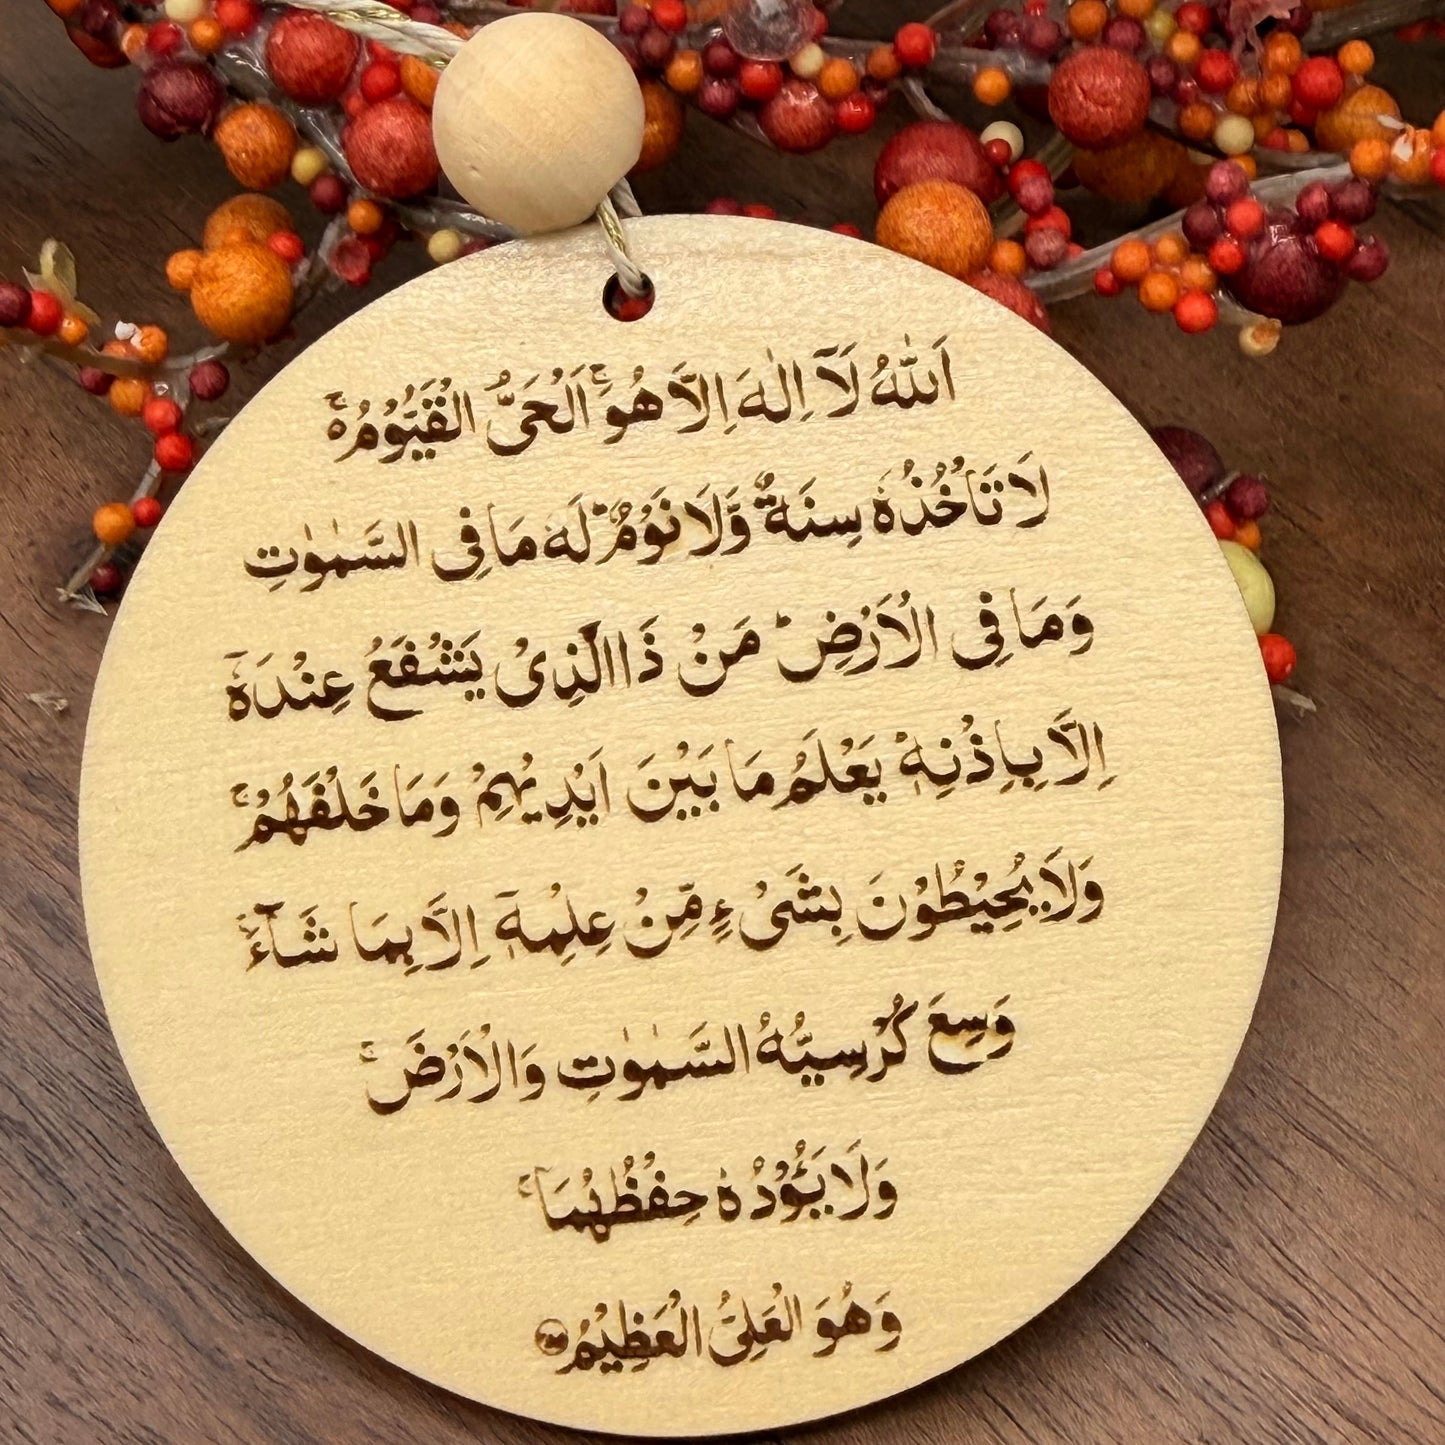 اَللّٰهُ لَآ اِلٰهَ اِلَّا هُوَۚ اَلْحَیُّ الْقَیُّوْمُ ۚ۬
لَا تَاْخُذُهٗ سِنَةٌ وَّلَا نَوْمٌ ؕ لَهٗ مَا فِی السَّمٰوٰتِ
وَمَا فِی الْاَرْضِ ؕ مَنْ ذَا الَّذِیْ یَشْفَعُ عِنْدَهٗۤ
اِلَّا بِاِذْنِهٖ ؕ یَعْلَمُ مَا بَیْنَ اَیْدِیْهِمْ وَمَا خَلْفَهُمْ ۚ
وَلَا یُحِیْطُوْنَ بِشَیْءٍ مِّنْ عِلْمِهٖۤ اِلَّا بِمَا شَآءَ ۚ
وَسِعَ كُرْسِیُّهُ السَّمٰوٰتِ وَالْاَرْضَ ۚ
وَلَا یَـُٔوْدُهٗ حِفْظُهُمَا ۚ
وَهُوَ الْعَلِیُّ الْعَظِیْمُ